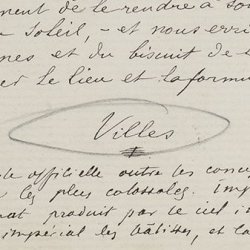 ment de le rendre à son
soleil, - et nous erri
nes et du biscuit de
er le lieu et la formu
Villes
le officielle outre les conce
les plus colossales. Imp
mat produit par le ciel i
impérial les bâtisses, et la